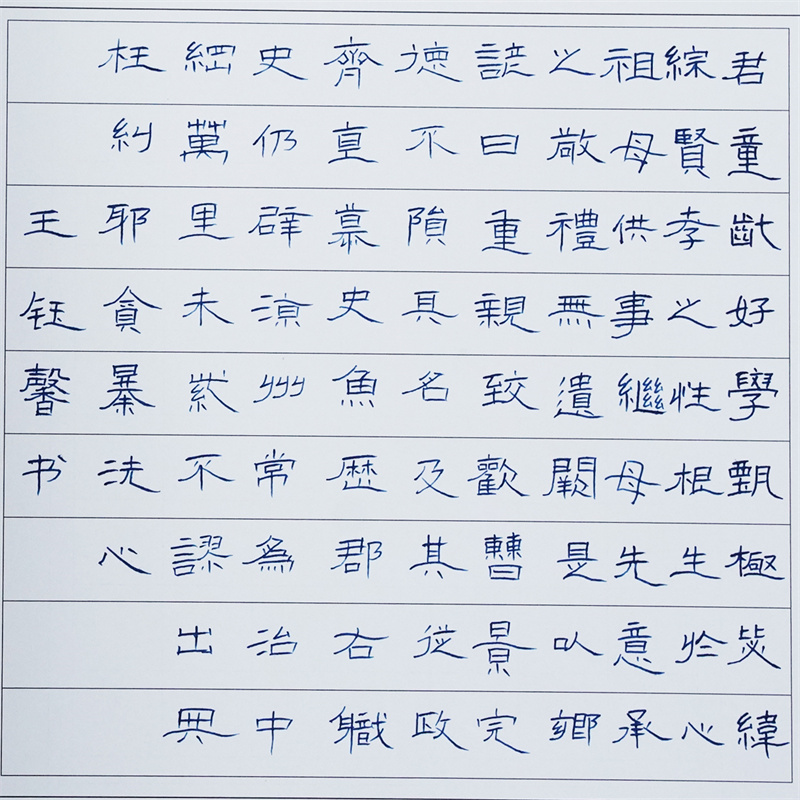 君童齔好學甄極毖緯
綜賢孝之性根生於心
祖母供事繼母先意承
之敬禮無遺闕是以鄉
諺曰重親致歡曹景完
德不隕具名及其從政
齊直慕史魚歷郡右職
史仍辟涼州常為治中
綱萬里朱紫不謬出典
枉糾邪貪暴洗心
王钰馨书